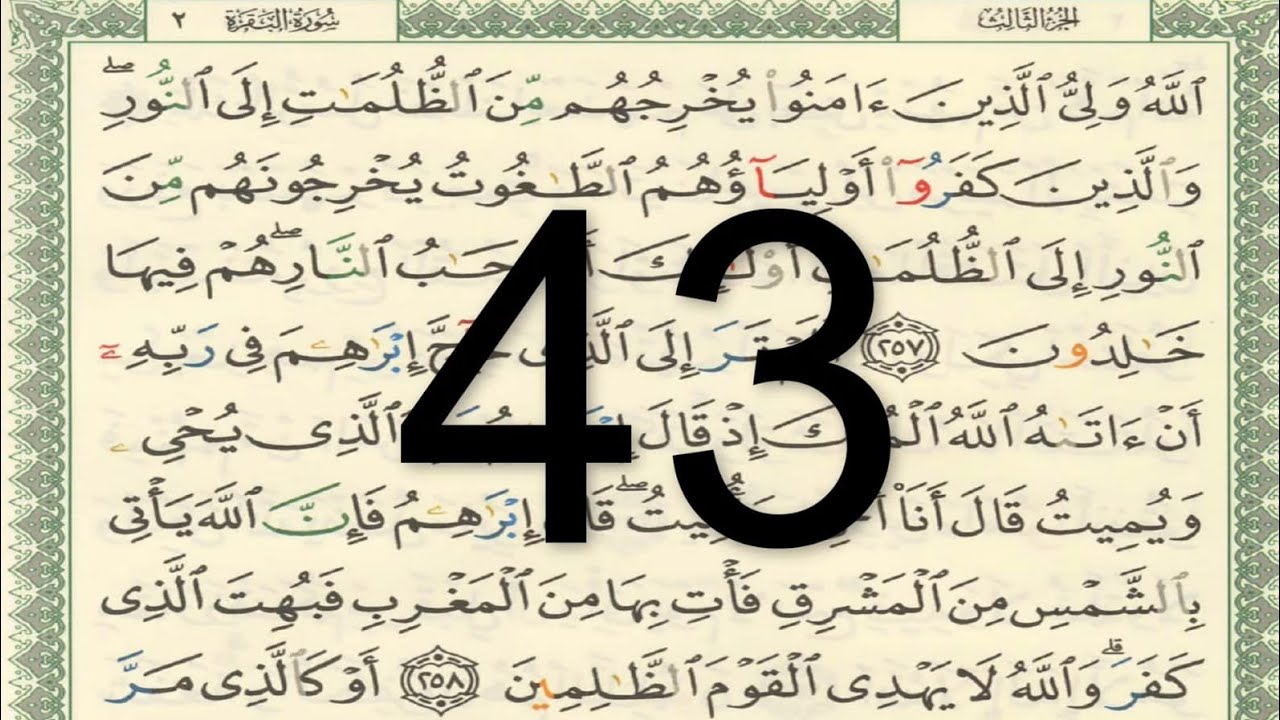 الجزء الثالث
سورة البقرة ٢
ٱللَّهُ وَلِىُّ ٱلَّذِينَ ءَامَنُوا۟ يُخْرِجُهُم مِّنَ ٱلظُّلُمَٰتِ إِلَى ٱلنُّورِ ۖ
وَٱلَّذِينَ كَفَرُوٓا۟ أَوْلِيَآؤُهُمُ ٱلطَّٰغُوتُ يُخْرِجُونَهُم مِّنَ
ٱلنُّورِ إِلَى ٱلظُّلُمَٰتِ أُو۟لَٰٓئِكَ ٱلنَّارِ ۖ هُمْ فِيهَا
خَٰلِدُونَ ٢٥٧ تَرَ إِلَى حَآجَّ إِبْرَٰهِۦمَ فِى رَبِّهِۦٓ
أَنْ ءَاتَىٰهُ ٱللَّهُ إِذْ قَالَ ٱلَّذِى يُحْىِۦ
وَيُمِيتُ قَالَ أَنَا۠ إِبْرَٰهِۦمُ فَإِنَّ ٱللَّهَ يَأْتِى
بِٱلشَّمْسِ مِنَ ٱلْمَشْرِقِ فَأْتِ بِهَا مِنَ ٱلْمَغْرِبِ فَبُهِتَ ٱلَّذِى
كَفَرَ ۗ وَٱللَّهُ لَا يَهْدِى ٱلْقَوْمَ ٱلظَّٰلِمِينَ ٢٥٨ أَوْ كَٱلَّذِى مَرَّ
43